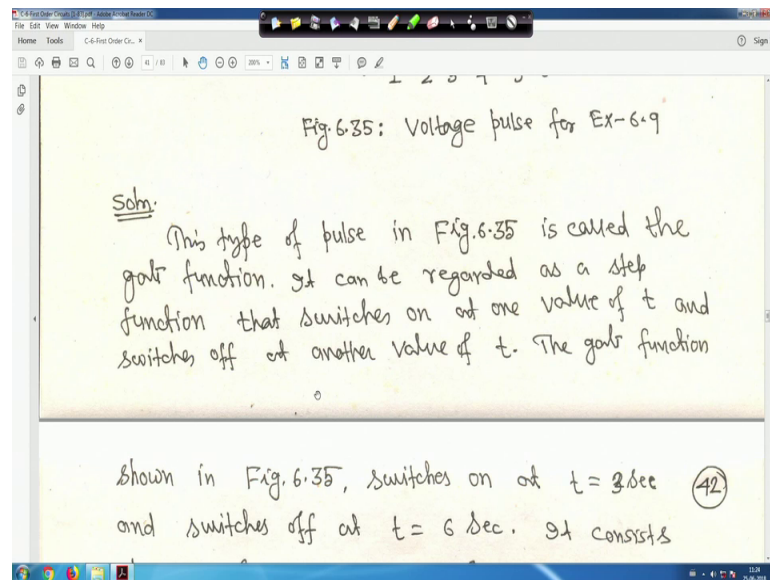 C-6-First Order Circuits [1-83].pdf - Adobe Acrobat Reader DC
File Edit View Window Help
Home Tools C-6-First Order Cir... × Sign
41 / 83 200%
1 2 3 4 5
Fig. 6.35: Voltage pulse for Ex-6.9
Soln.
This type of pulse in Fig. 6.35 is called the
gate function. It can be regarded as a step
function that switches on at one value of t and
switches off at another value of t. The gate function
shown in Fig. 6.35, switches on at t = 3 sec 42
and switches off at t = 6 sec. It consists
11:24